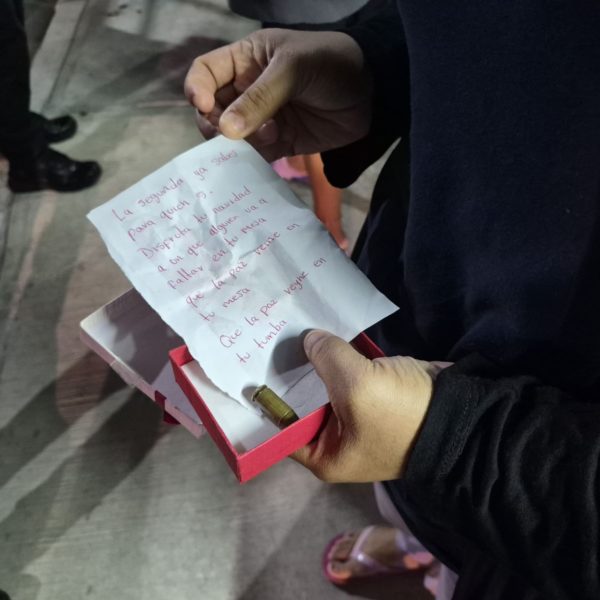 La segunda ya sabes
para quien es.
Disfruta tu navidad
a on que alguien va a
faltar en tu mesa
que la paz reine en
tu mesa
Que la paz reyne en
tu tumba